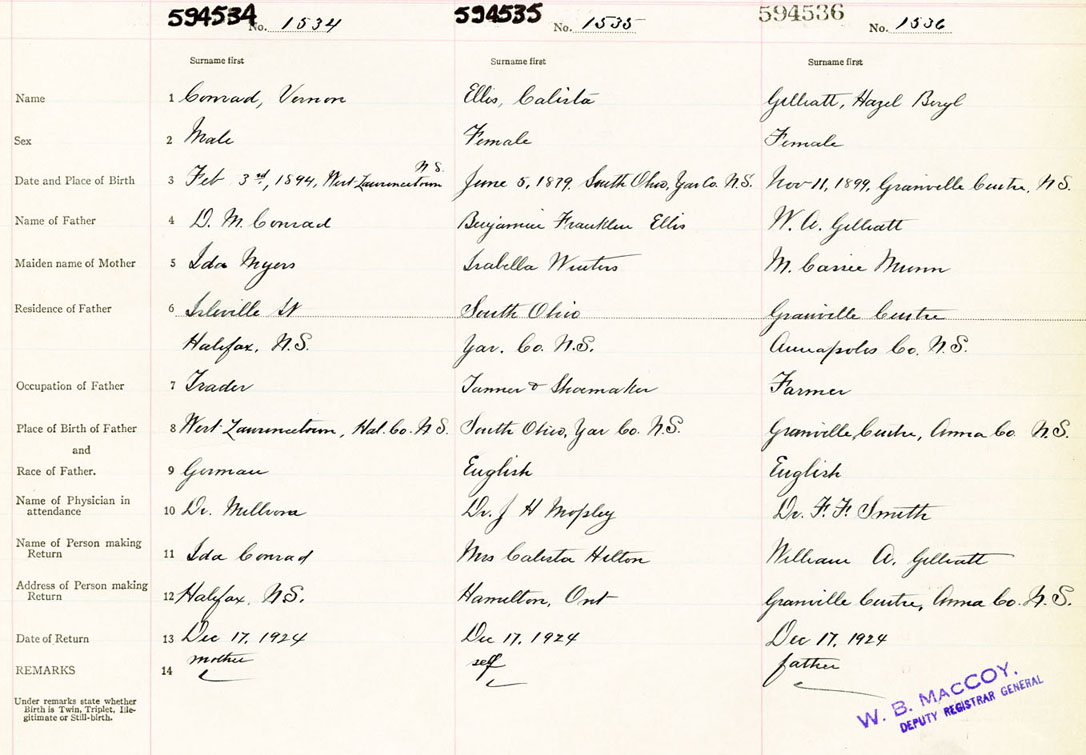 594534 No. 1534 594535 No. 1535 594536 No. 1536
Surname first Surname first Surname first
Name 1 Conrad, Vernon Ellis, Calista Gilliatt, Hazel Beryl
Sex 2 Male Female Female
N.S.
Date and Place of Birth 3 Feb 3rd, 1894, West Lawrencetown June 5, 1879, South Ohio, Yar Co. N.S. Nov 11, 1899, Granville Centre, N.S.
Name of Father 4 D. M. Conrad Benjamin Franklin Ellis W. A. Gilliatt
Maiden name of Mother 5 Ida Myers Isabella Winters M. Carrie Munn
Residence of Father 6 Isleville St South Ohio Granville Centre
Halifax, N.S. Yar. Co. N.S. Annapolis Co. N.S.
Occupation of Father 7 Trader Tanner & Shoemaker Farmer
Place of Birth of Father 8 West Lawrencetown, Hal. Co. N.S. South Ohio, Yar Co. N.S. Granville Centre, Anna Co. N.S.
and
Race of Father. 9 German English English
Name of Physician in
attendance 10 Dr. Dr. J H Dr. F. F. Smith
Name of Person making
Return 11 Ida Conrad Mrs Calista Hilton William A. Gilliatt
Address of Person making
Return 12 Halifax, N.S. Hamilton, Ont Granville Centre, Anna Co. N.S.
Date of Return 13 Dec 17, 1924 Dec 17, 1924 Dec 17, 1924
REMARKS 14 mother self father
Under remarks state whether
Birth is Twin, Triplet, Ille-
gitimate or Still-birth.
W. B. MACCOY,
DEPUTY REGISTRAR GENERAL